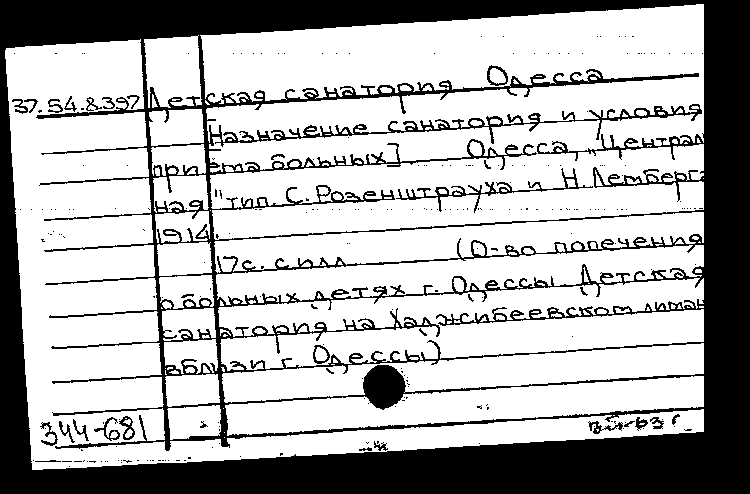 37.54.8.397 Детская санатория Одесса
[Назначение санатория и условия
приёма больных] Одесса, „Централ
ная" тип. С. Розенштрауха и Н. Лемберга
1914.
17с. с илл. (О-во попечения
о больных детях г. Одессы Детская
санатория на Хаджибеевском лиман
вблизи г. Одессы)
344-681